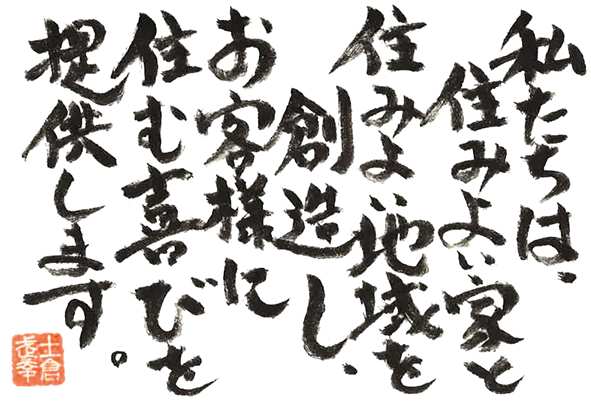 私たちは、
住みよい家と
住みよい地域を
創造し、
お客様に
住む喜びを
提供します。